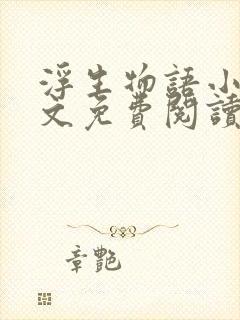 浮生物語小
文免費閱讀
章艷